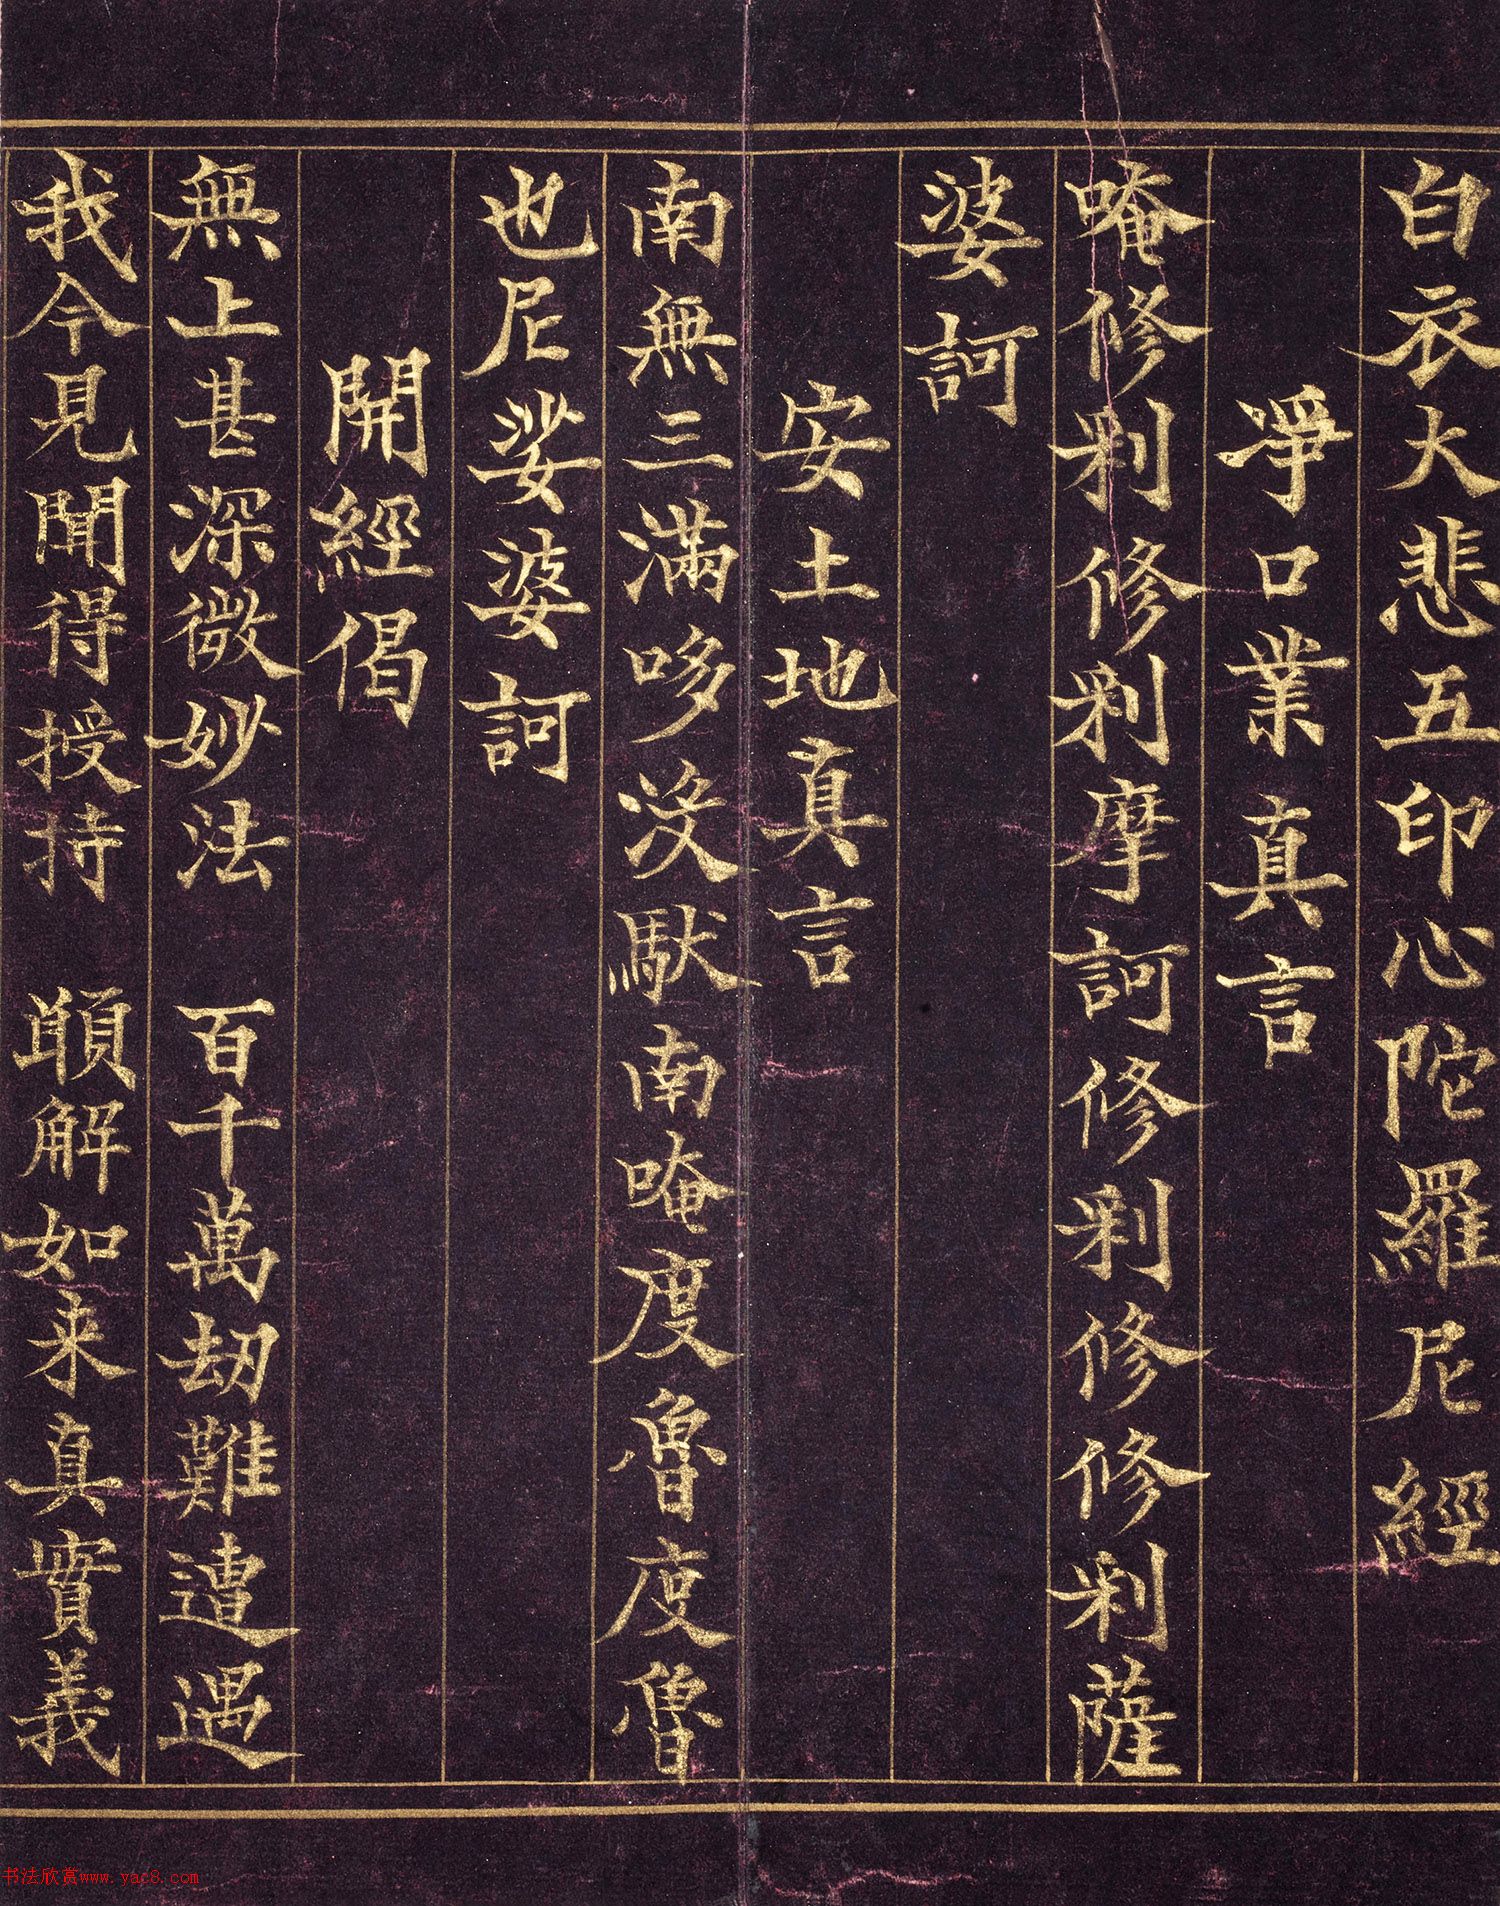 白衣大悲五印心陀羅尼經
淨口業真言
唵修利修利摩訶修利修修利薩
婆訶
安土地真言
南無三滿哆沒馱南唵度魯度魯
也尼娑婆訶
開經偈
無上甚深微妙法 百千萬劫難遭遇
我今見聞得授持 頋解如来真實義
书法欣赏www.yac8.com